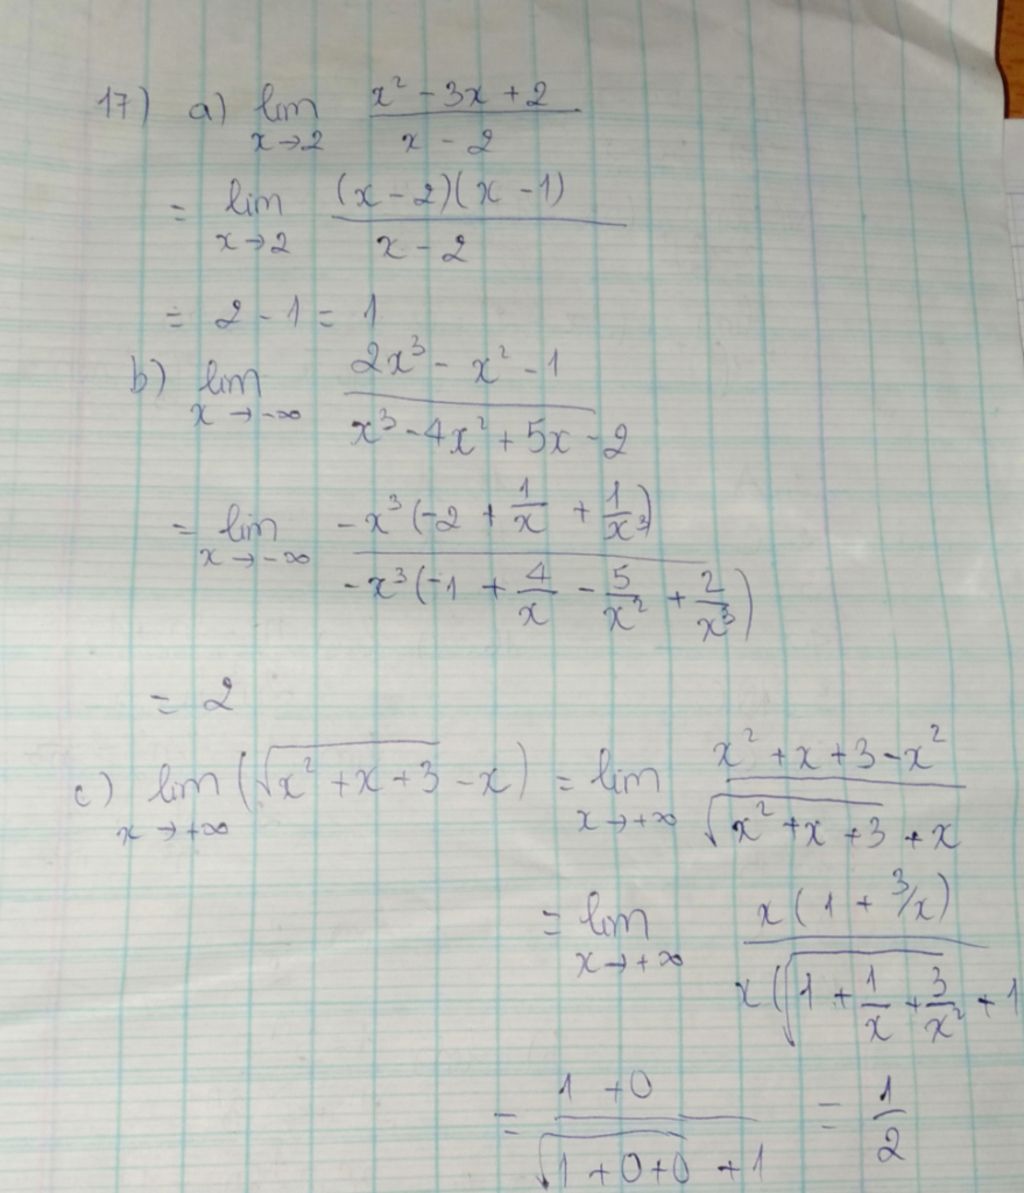 17) a) lim x→2 (x² - 3x + 2)/(x - 2)
= lim x→2 ((x - 2)(x - 1))/(x - 2)
= 2 - 1 = 1
b) lim x→-∞ (2x³ - x² - 1)/(x³ - 4x² + 5x - 2)
= lim x→-∞ (-x³(-2 + 1/x + 1/x³))/(-x³(-1 + 4/x - 5/x² + 2/x³))
= 2
c) lim x→+∞ (√(x² + x + 3) - x) = lim x→+∞ (x² + x + 3 - x²)/(√(x² + x + 3) + x)
= lim x→+∞ (x(1 + 3/x))/(x(√(1 + 1/x + 3/x²) + 1
= (1 + 0)/(√(1 + 0 + 0) + 1) = 1/2